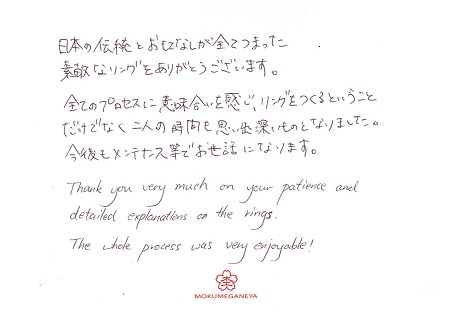 日本の伝統とおもてなしが全てつまった
素敵なリングをありがとうございます。
全てのプロセスに意味合いを感じ、リングをつくるということ
だけでなく二人の時間も思い出深いものとなりました。
今後もメンテナンス等でお世話になります。
Thank you very much on your patience and
detailed explanations on the rings.
The whole process was very enjoyable!
MOKUMEGANEYA